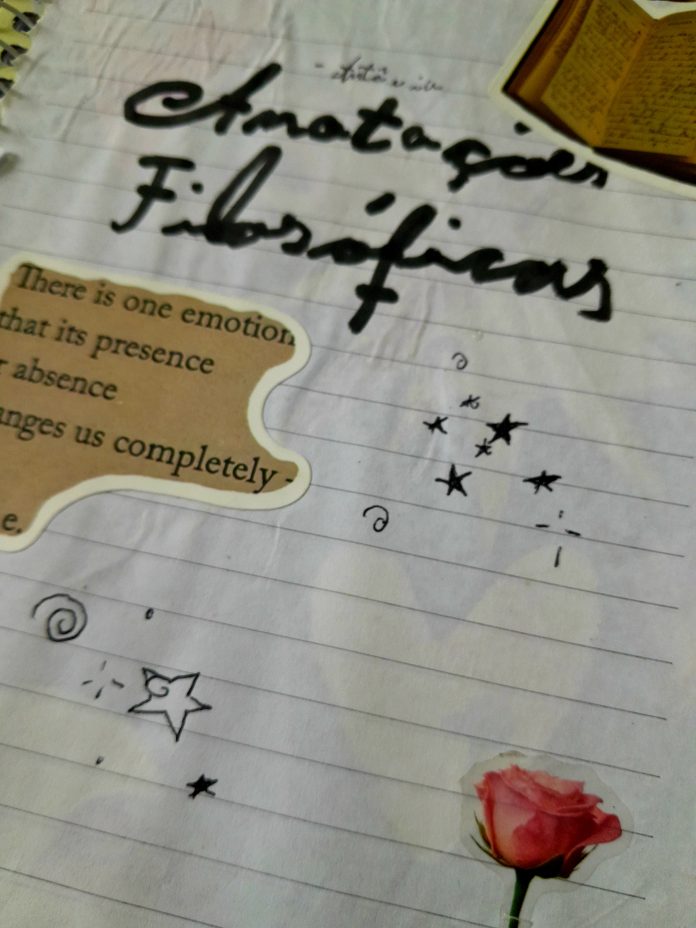 Anotações
Filosóficas
There is one emotion
that its presence
absence
anges us completely -
e.